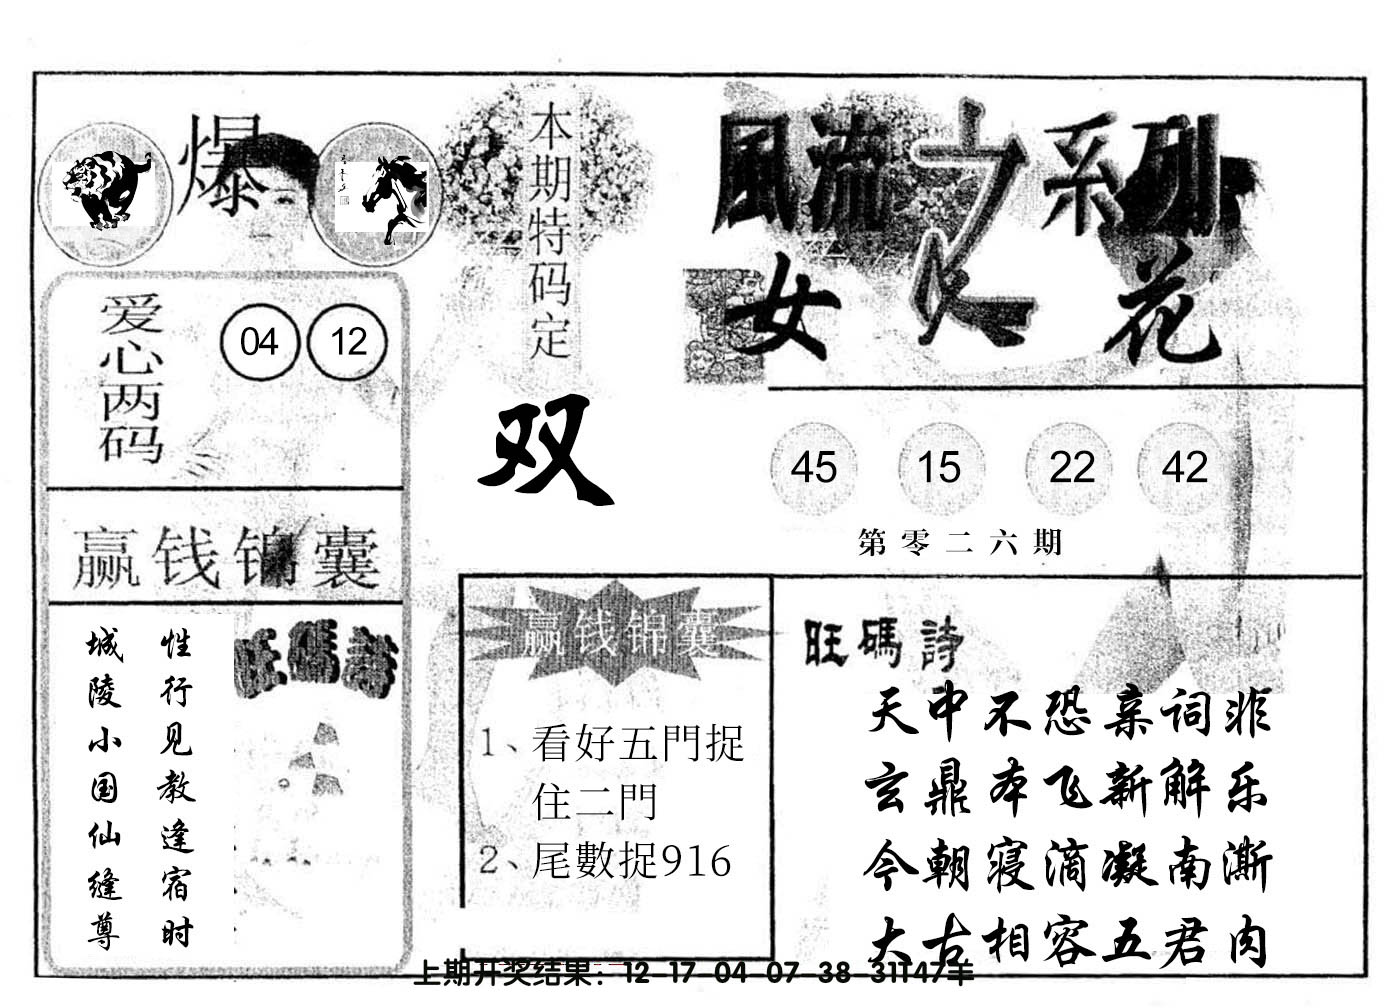 爆
本期特码定
双
風流之系列
女人花
爱心两码
04 12
45 15 22 42
第零二六期
赢钱锦囊
性行见教逢宿时
城陵小国仙缝尊
旺碼詩
赢钱锦囊
1、看好五門捉
住二門
2、尾數捉916
旺碼詩
天中不恐亲词非
玄鼎本飞新解乐
今朝寝滴凝南澌
大古相容五君肉
上期开奖结果：12-17-04-07-38-31T47羊